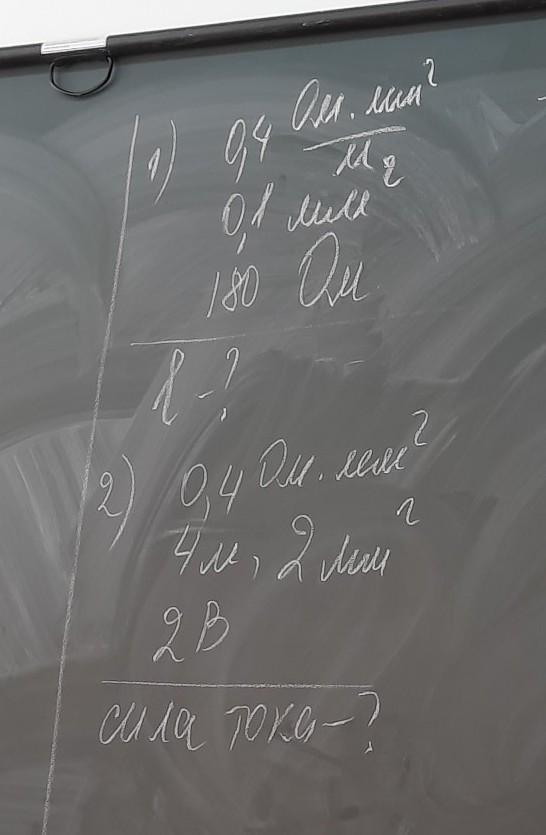 1) 0,4 Ом·мм²/м
0,1 мм²
180 Ом
l - ?
2) 0,4 Ом·мм²
4м, 2 мм²
2В
сила тока - ?